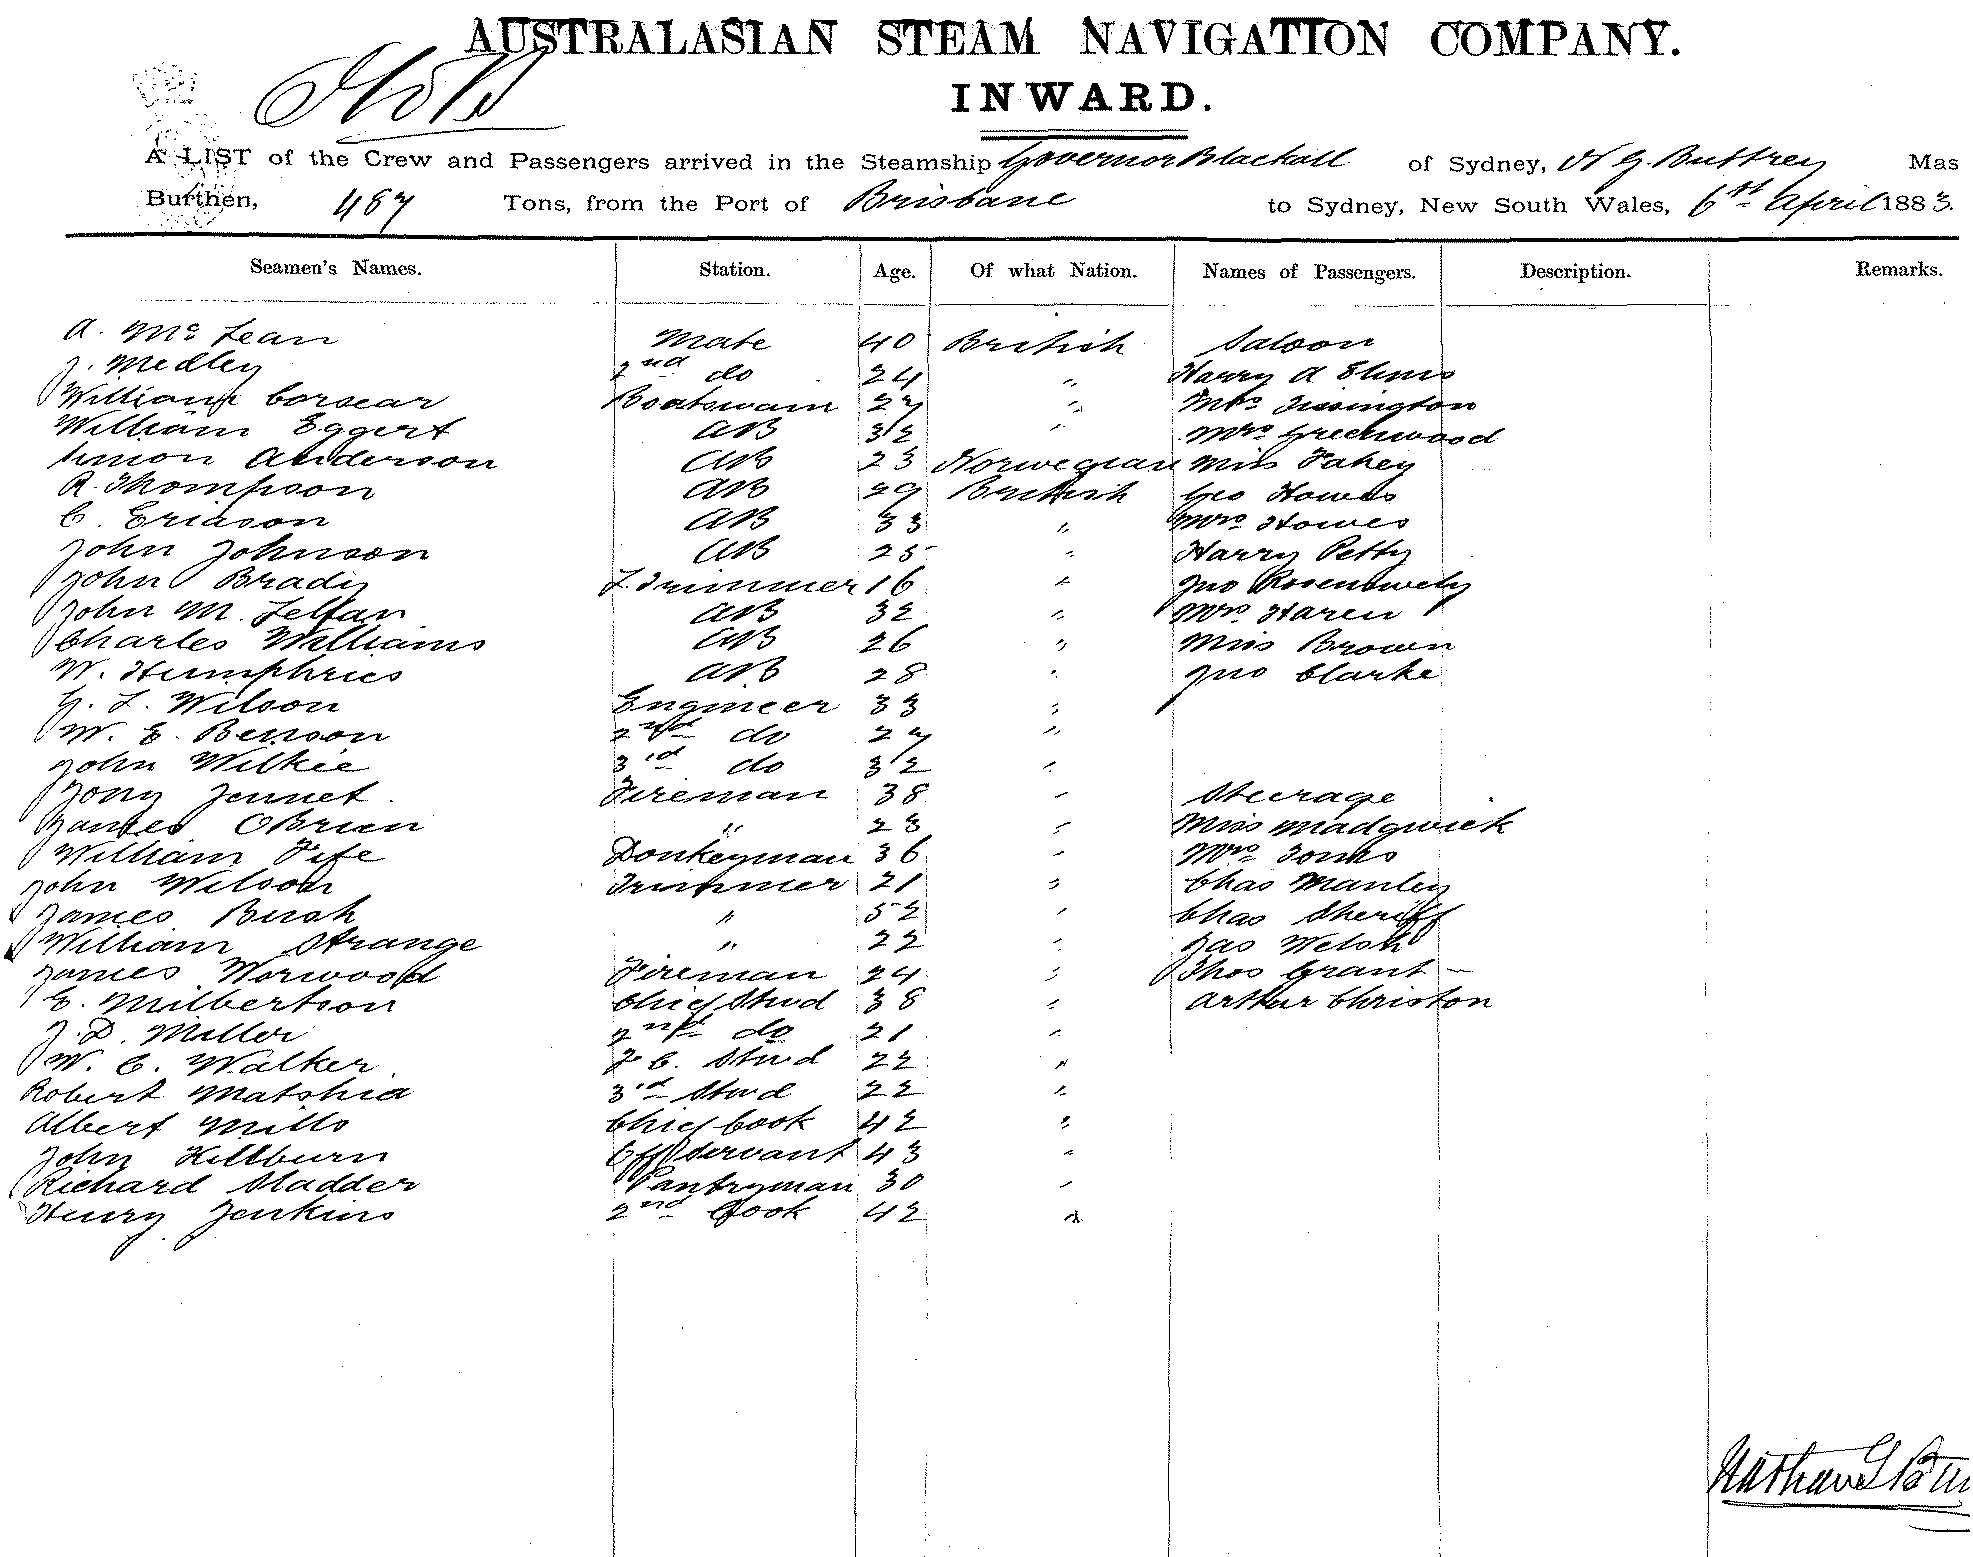 AUSTRALASIAN STEAM NAVIGATION COMPANY.
INWARD.
A LIST of the Crew and Passengers arrived in the Steamship Governor Blackall of Sydney, N G. Buttrey Mas
Burthen, 487 Tons, from the Port of Brisbane to Sydney, New South Wales, 6th April 1883.
Seamen's Names. Station. Age. Of what Nation. Names of Passengers. Description. Remarks.
A. Mc Lean Mate 40 British Saloon
J. Medley 2nd do 24 " Harry A
William Corsear Boatswain 27 " Mrs Tissington
William Eggert AB 32 " Mrs Greenwood
Simon Anderson AB 23 Norwegian Miss Fahey
R. Thompson AB 29 British Geo Howes
C. Ericson AB 33 " Mrs Howes
John Johnson AB 25 " Harry Petty
John Brady L. Trimmer 16 " Jno
John M. Lellan AB 32 " Mrs Haren
Charles Williams AB 26 " Miss Brown
W. Humphries AB 28 " Jno Clarke
G. L. Wilson Engineer 33 "
W. E. Benson 2nd do 27 "
John Wilkie 3rd do 32 "
Tony Jennet. Fireman 38 " Steerage
James OBrien " 23 " Miss Madgwick
William Fife Donkeyman 36 " Mrs Tonks
John Wilson Trimmer 21 " Chas Manley
James Bush " 52 " Chas Sheriff
William Strange " 22 " Jas Welsh
James Worwood Fireman 24 " Thos Grant
E. Milbertson Chief Stwd 38 " Arthur Christon
J. D. Miller 2nd do 21 "
W. C. Walker 2 C. Stwd 22 "
Robert Matshia 3rd Stwd 22 "
Albert Mills Chief Cook 42 "
John Hillburn Off Servant 43 "
Richard Sladder Pantryman 30 "
Henry Jenkins 2nd Cook 42 "
Nathan G